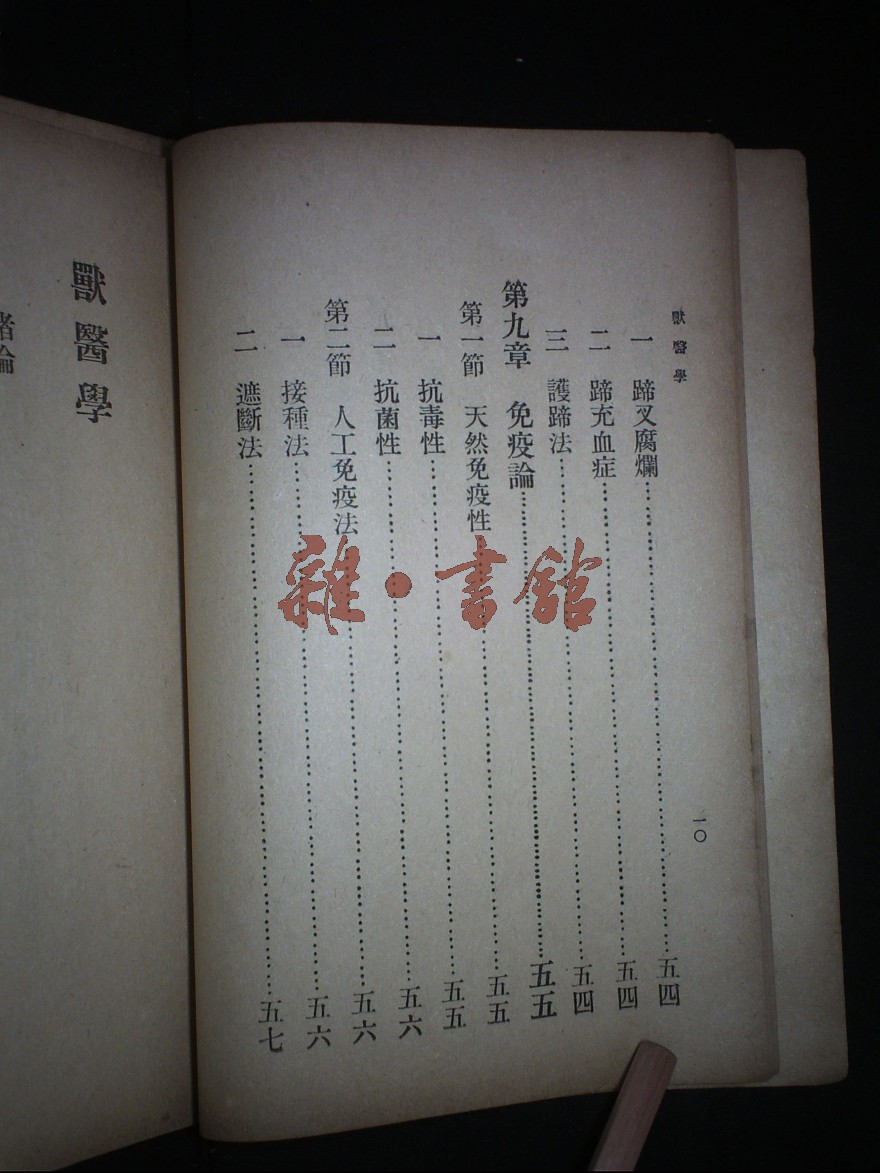 獸醫學
一〇
一 蹄叉腐爛……五四
二 蹄充血症……五四
三 護蹄法……五四
第九章 免疫論……五五
第一節 天然免疫性……五五
一 抗毒性……五五
二 抗菌性……五六
第二節 人工免疫法……五六
一 接種法……五六
二 遮斷法……五七
獸醫學
緒論
雜·書館